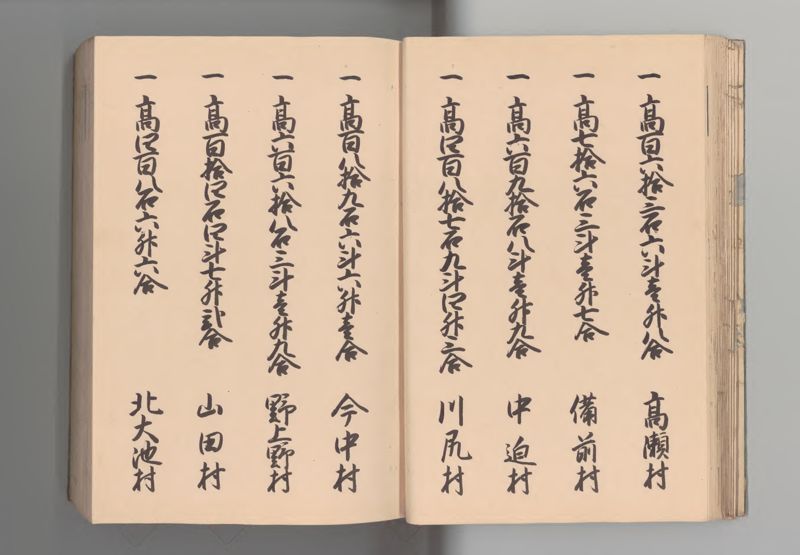 一 高百六拾三石六斗壱升八合 高瀬村
一 高七拾六石三斗壱升七合 備前村
一 高六百九拾石八斗壱升九合 中迫村
一 高四百八拾七石九斗四升三合 川尻村
一 高百八拾九石六斗六升壱合 今中村
一 高六百六拾八石三斗壱升九合 野上野村
一 高百拾四石四斗七升弐合 山田村
一 高四百八石六升六合 北大池村